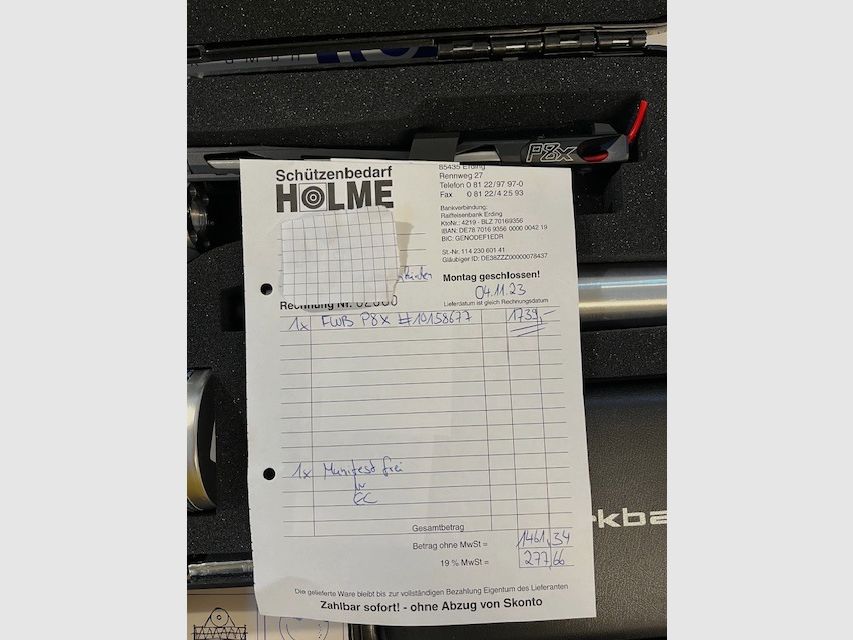 GMBH
P8x
Schützenbedarf
HOLME
85435 Erding
Rennweg 27
Telefon 0 81 22/97 97-0
Fax 0 81 22/4 25 93
Bankverbindung:
Raiffeisenbank Erding
KtoNr.: 4219 - BLZ 70169356
IBAN: DE78 7016 9356 0000 0042 19
BIC: GENODEF1EDR
St.-Nr. 114 230 601 41
Gläubiger ID: DE38ZZZ00000078437
Montag geschlossen!
04.11.23
Rechnung Nr.
Lieferdatum ist gleich Rechnungsdatum
1x FWB P8X #10158677 1739,-
1x Munifest frei
EC
Gesamtbetrag
Betrag ohne MwSt = 1461,34
19 % MwSt = 277,66
Die gelieferte Ware bleibt bis zur vollständigen Bezahlung Eigentum des Lieferanten
Zahlbar sofort! - ohne Abzug von Skonto